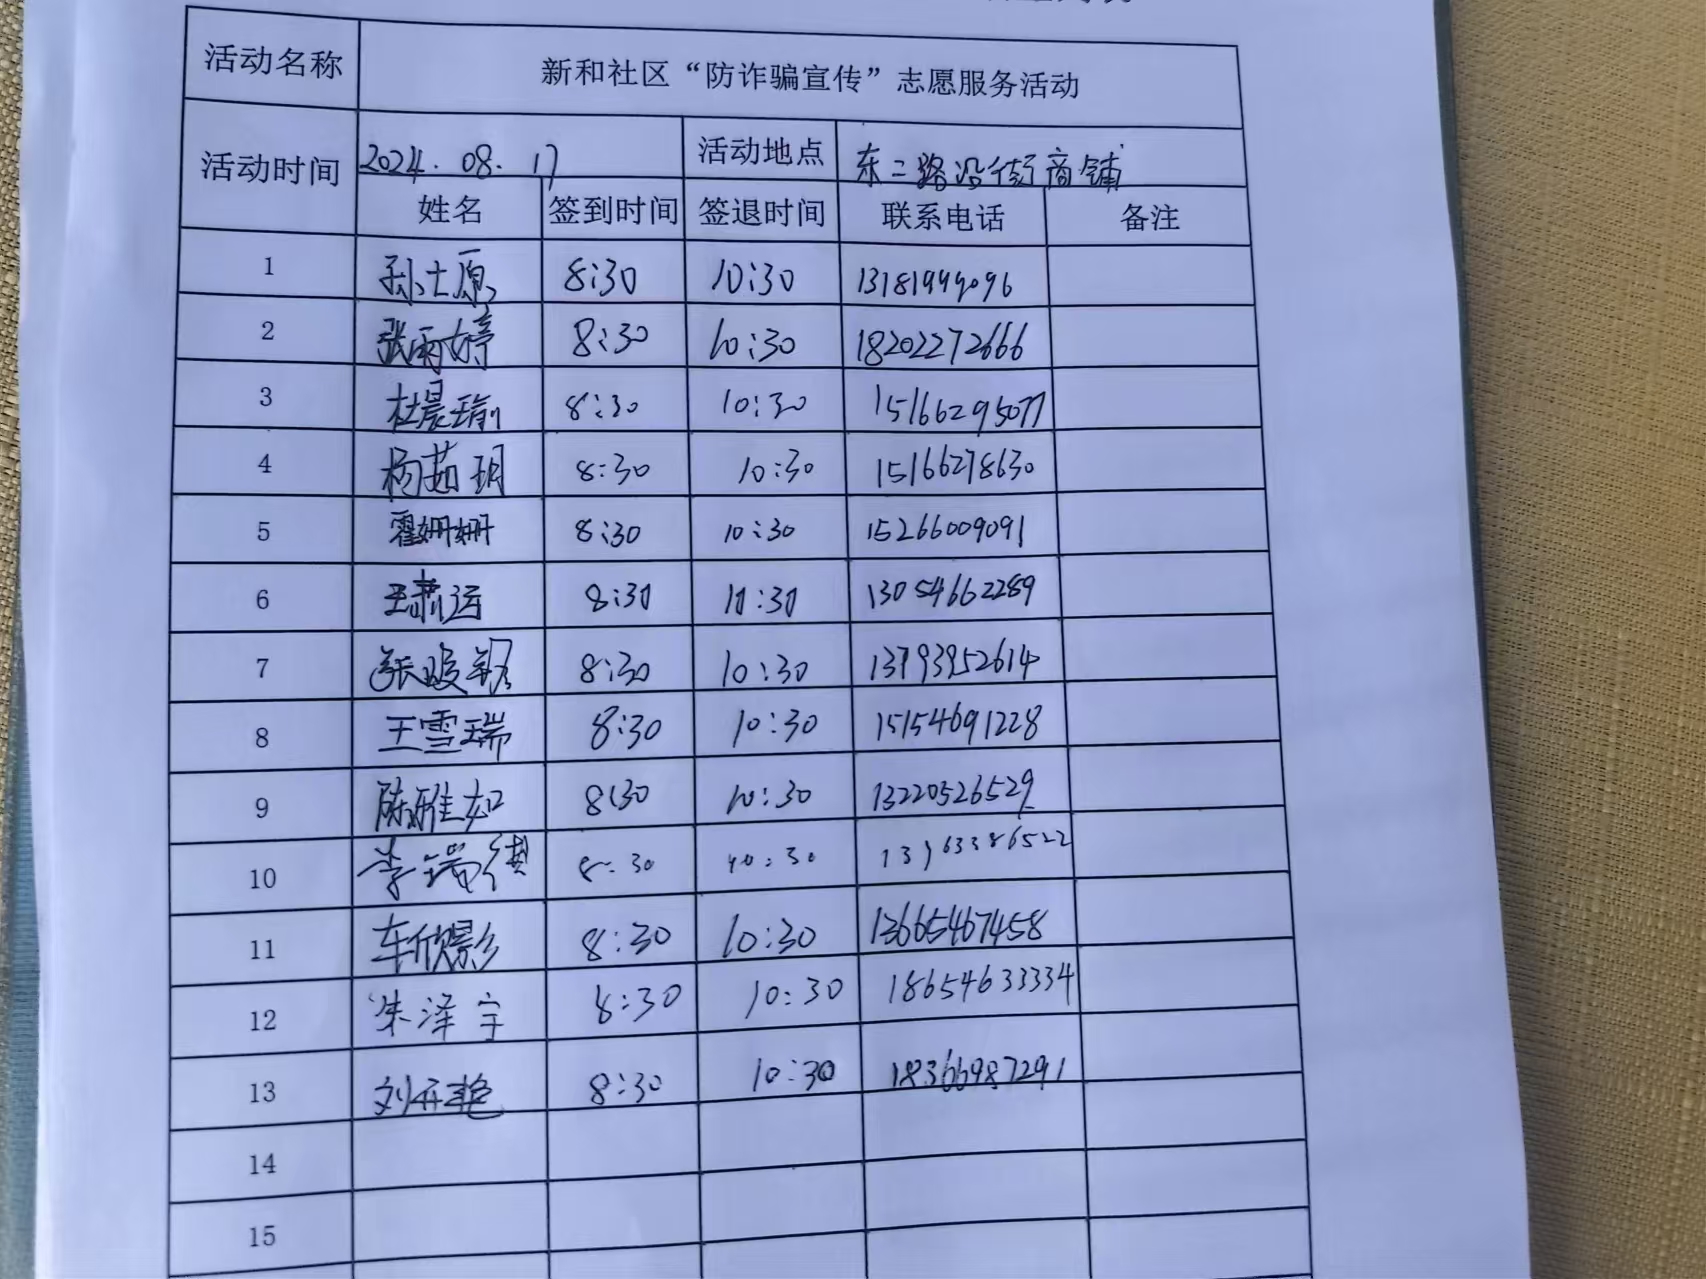 活动名称 新和社区“防诈骗宣传”志愿服务活动
活动时间 2024.08.17 活动地点 东二路沿街商铺
姓名 签到时间 签退时间 联系电话 备注
1 孙士原 8:30 10:30 13181999096
2 张雨婷 8:30 10:30 18202272666
3 杜晨瑜 8:30 10:30 15166295077
4 杨茹玥 8:30 10:30 15166278630
5 霍姗姗 8:30 10:30 15266009091
6 王肃运 8:30 10:30 13054662289
7 张 8:30 10:30 13793952614
8 王雪瑞 8:30 10:30 15154691228
9 陈雅如 8:30 10:30 13220526529
10 李瑞 8:30 10:30
11 车欣影 8:30 10:30 13665467458
12 朱泽宇 8:30 10:30 18654633334
13 刘 艳 8:30 10:30 18366987291
14
15